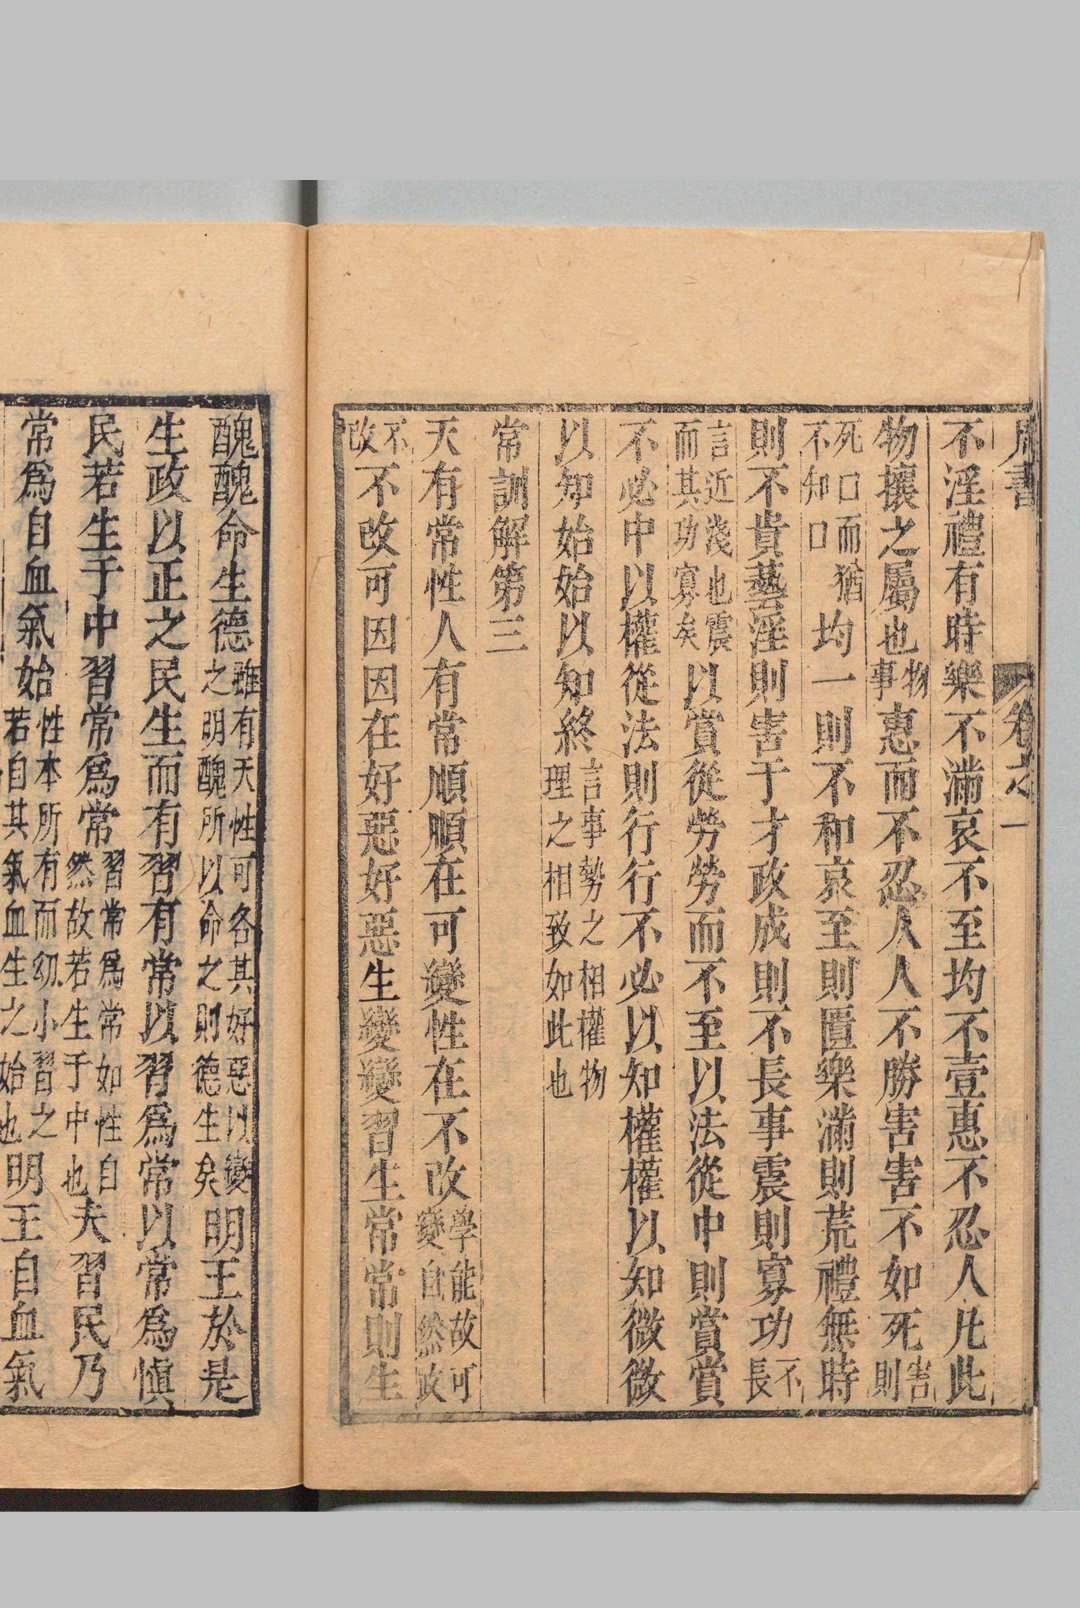 周書 卷之一
不淫禮有時樂不滿哀不至均不壹惠不忍人凡此
物攘之屬也物事惠而不忍人人不勝害害不如死害則
死口而猶不知口均一則不和哀至則匱樂滿則荒禮無時
則不貴藝淫則害于才政成則不長事震則寡功不長
言近淺也震而其功寡矣以賞從勞勞而不至以法從中則賞賞
不必中以權從法則行行不必以知權權以知微微
以知始始以知終言事勢之相權物理之相致如此也
常訓解第三
天有常性人有常順順在可變性在不改學能故可變自然故
不改不改可因因在好惡好惡生變變習生常常則生
醜醜命生德雖有天性可各其好惡以變之明醜所以命之則德生矣明王於是
生政以正之民生而有習有常以習為常以常為慎
民若生于中習常為常習常為常如性自然故若生于中也夫習民乃
常為自血氣始性本所有而幼小習之若自其氣血生之始也明王自血氣